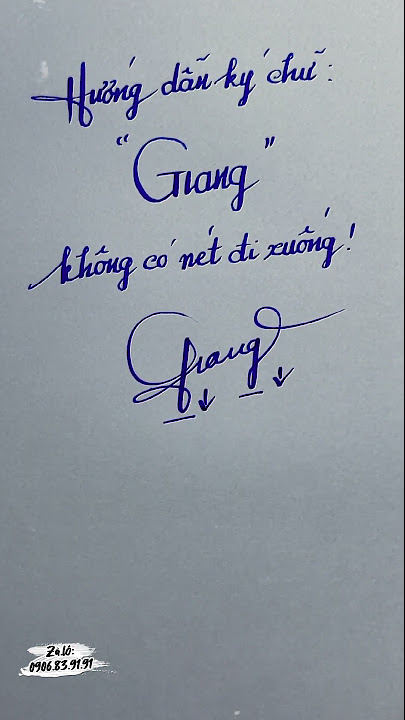 Hướng dẫn ký chữ:
“Giang”
không có nét đi xuống!
Giang
Zalo:
0906.83.91.91